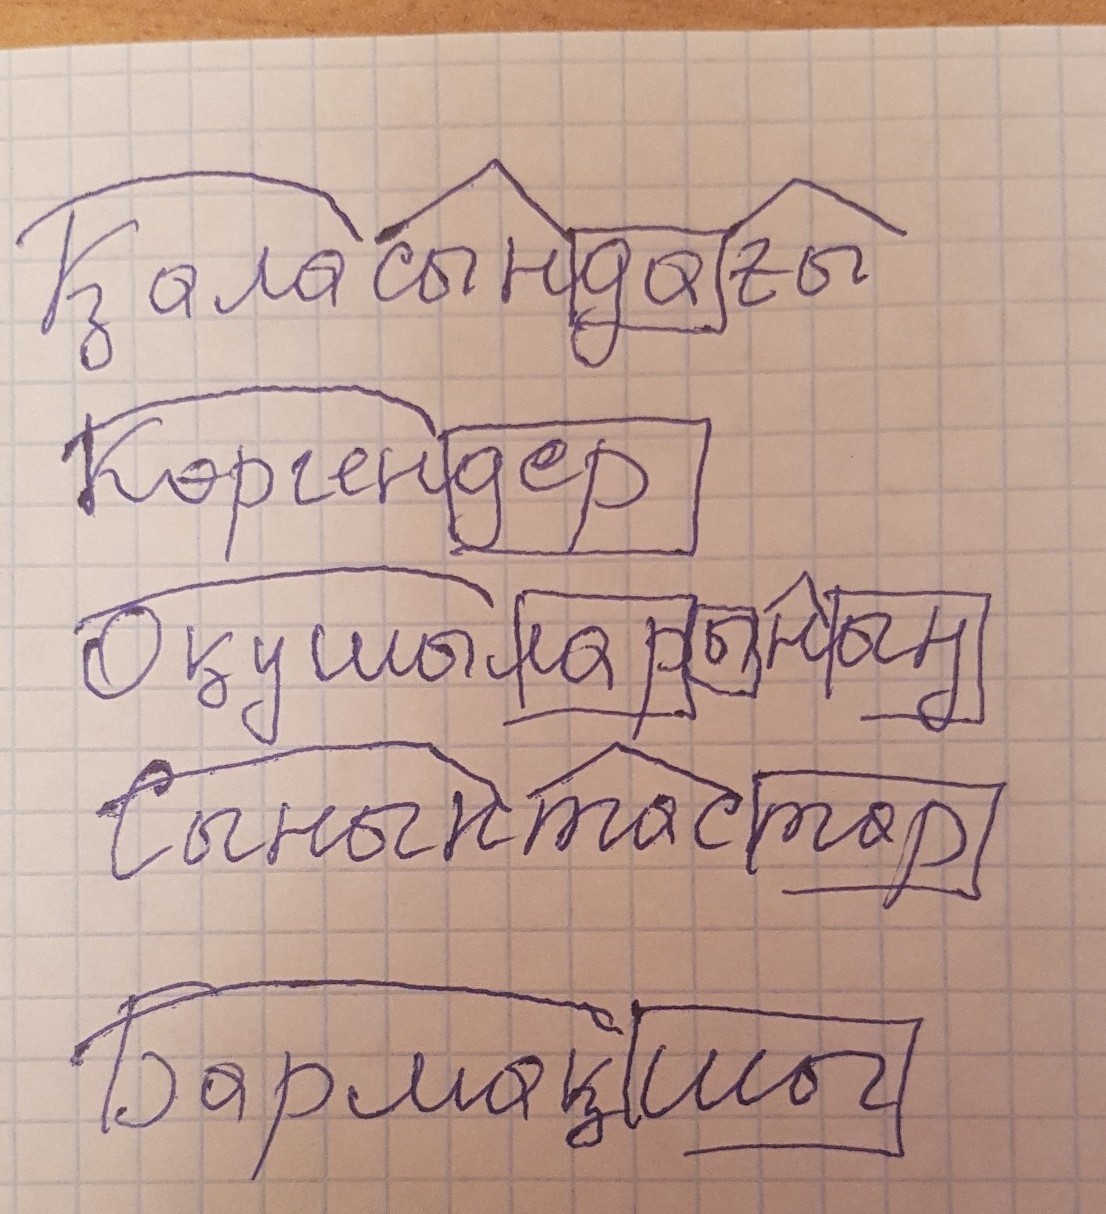 Қаласындағы
Көргендер
Оқушыларының
Сыныктастар
Бармақшы